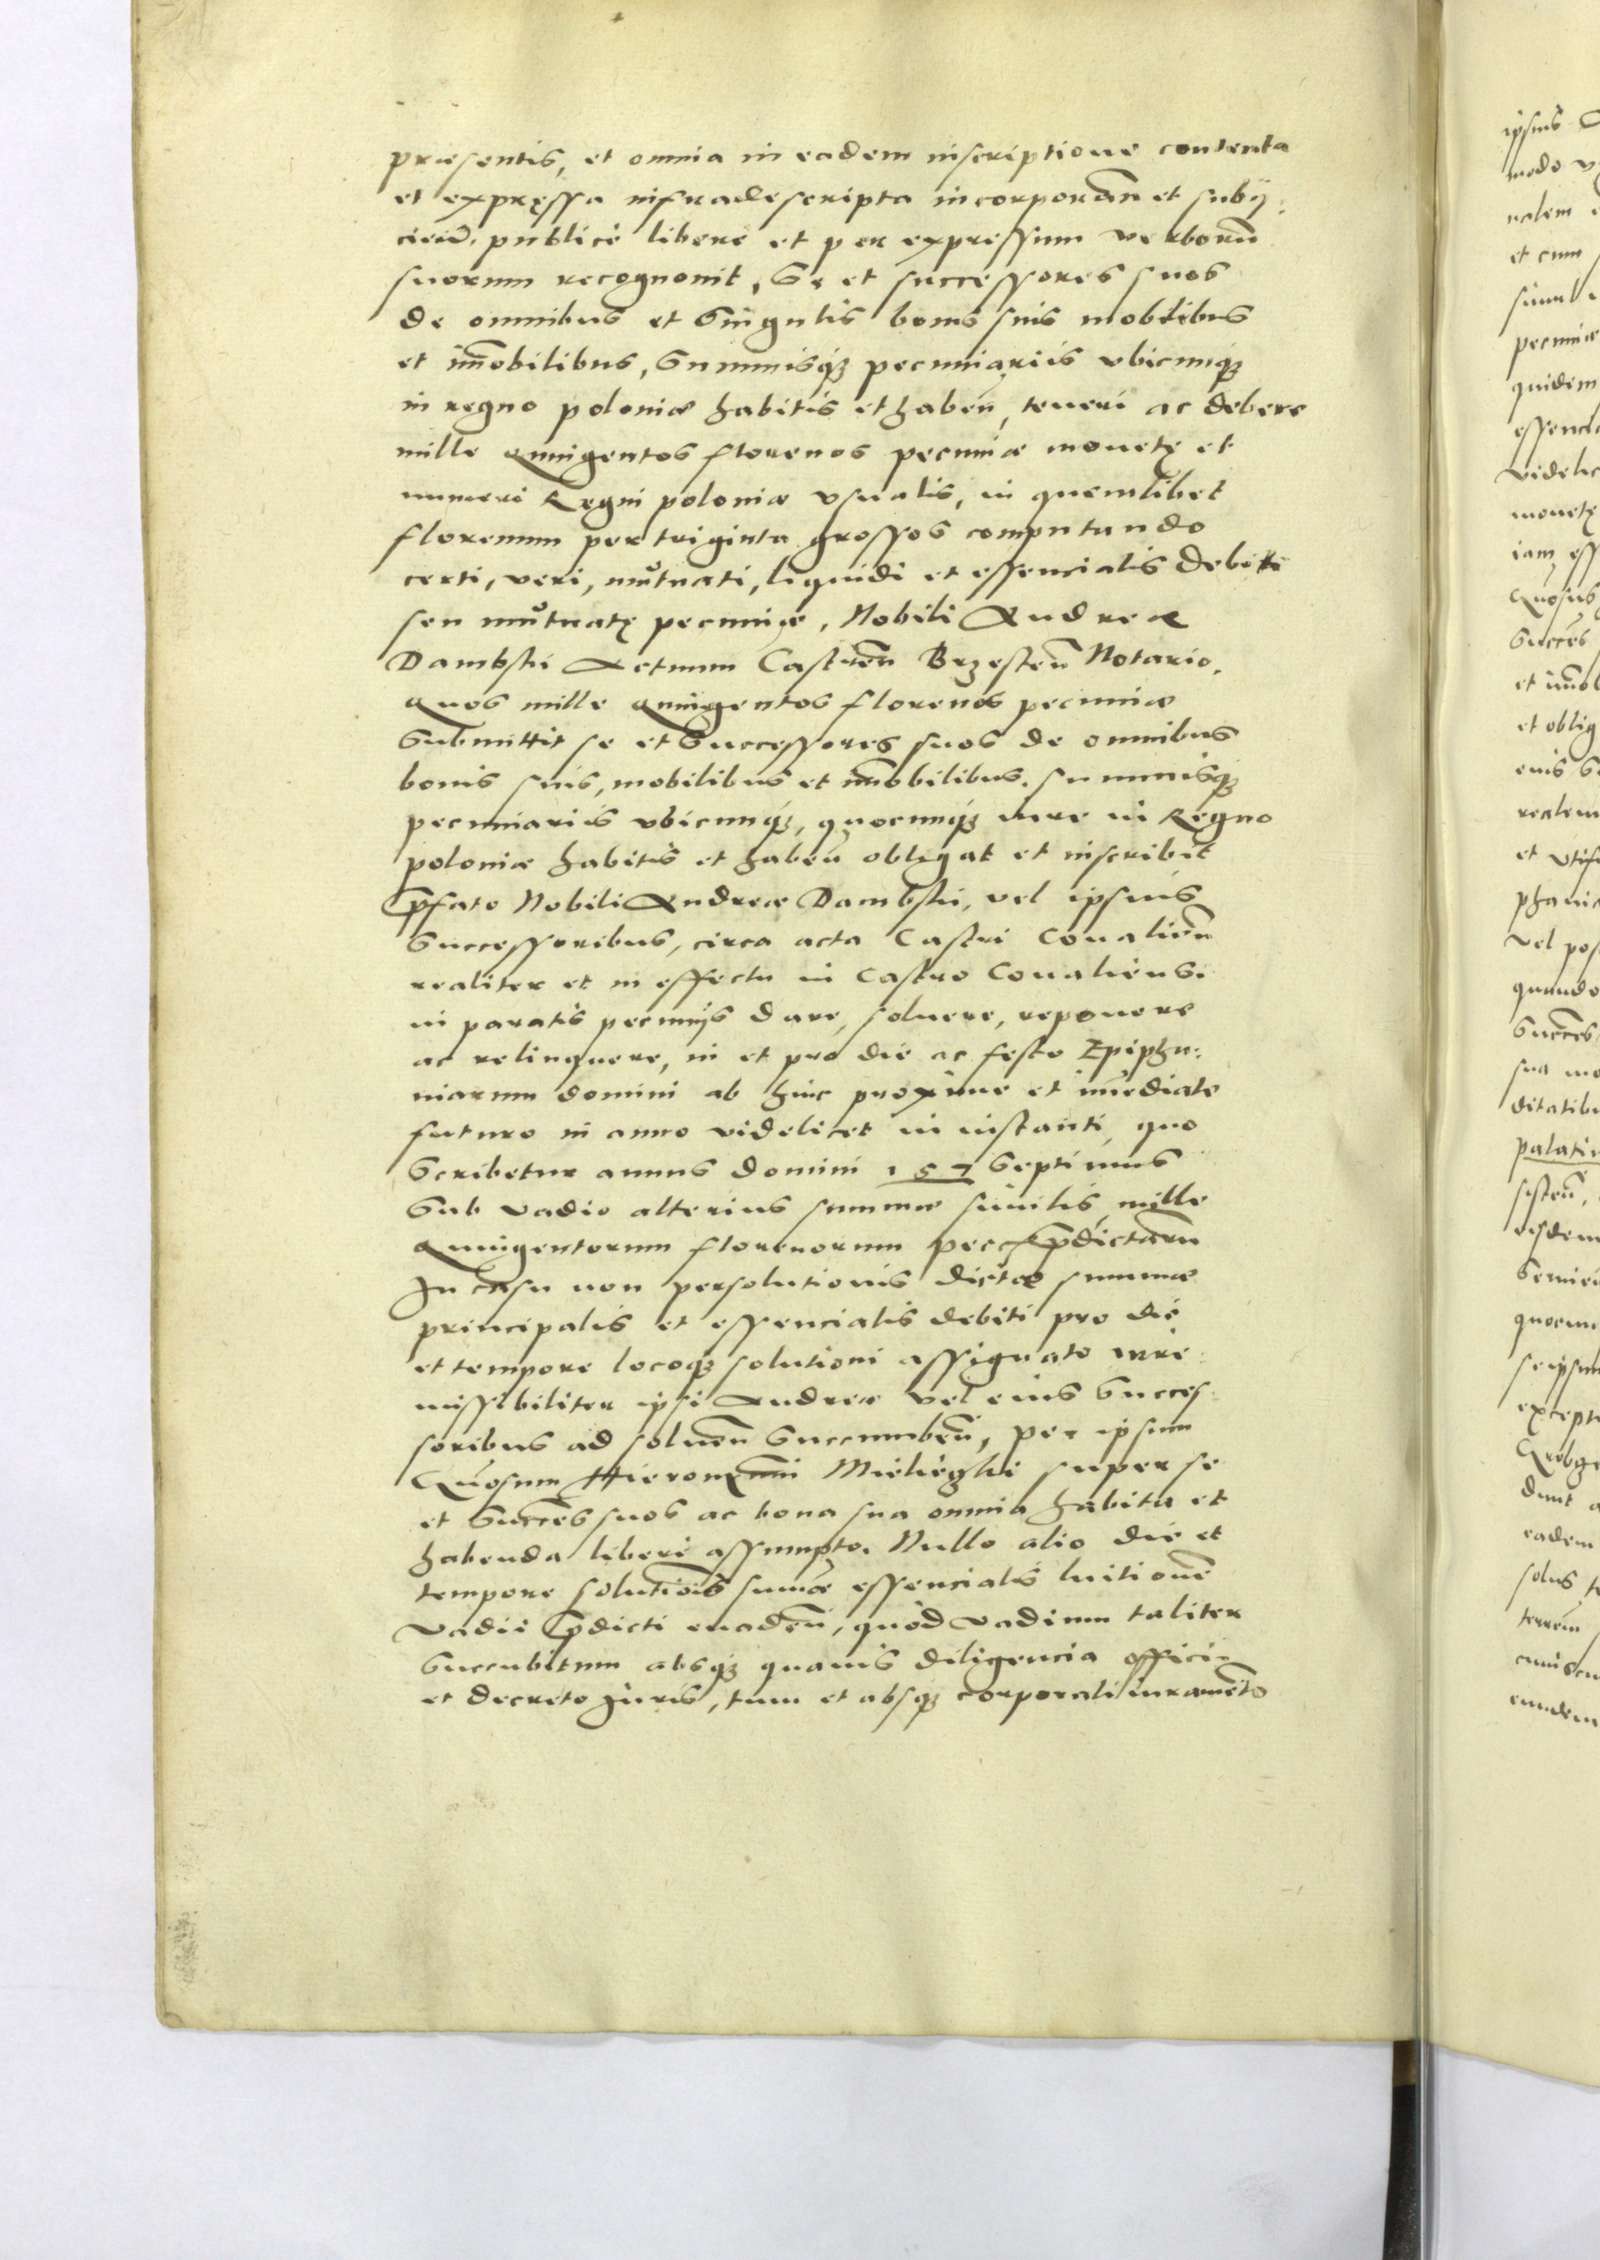 præsentis, et omnia in eadem inscriptione contenta
et expręssa infradescripta incorporań et subij:
cieñ, publicè liberè et per expressum verborũ
suorum recognouit, Se et successores suos
de omnibus et Singulis bonis suis mobilibus
et im̃obilibus, Summisq3 pecuniariis vbicunq3
in regno poloniæ habitis et habeń, teneri ac debere
mille quingentos florenos pecuniæ monetę et
numeri Regni poloniæ vsualis, in quemlibet
florenum per triginta grossos computando
certi, veri, mutuati, liquidi et essencialis debiti
seu mutuatę pecuniæ, Nobili Andreæ
Dambski Actuum Castreñ Brzesteñ Notario,
quos mille quingentos florenos pecuniæ
Submittit se et Successores suos de omnibus
bonis suis, mobilibus et im̃obilibus, summisq3
pecuniariis vbicunq3, quocunq3 iure in Regno
poloniæ habitis et habeñ obligat et inscribit
p̃fato Nobili Andreæ Dambski, vel ipsius
Successoribus, circa acta Castri Coualieñ
realiter et in effectu in Castro Coualiensi
in paratis pecunijs dare, soluere, reponere
ac relinquere, in et pro die ac festo Epipha:
niarum domini ab hinc proxime et im̃ediate
futuro in anno videlicet in instanti, quo
Scribetur annus domini 157 Septimus
Sub vadio alterius summæ similis mille
Quingentorum florenorum pecc p̃dictarũ
In casu non persolutionis dictæ summæ
principalis et essencialis debiti pro die
et tempore locoq3 solutioni assignato irre:
missibiliter ipsi Andreæ vel eius Succes:
soribus ad solueñ Succumbeñ, per ipsum
Gñosum Hieronymi Mielieski super se
et Succes̃ suos ac bona sua omnia habita et
habenda liberè assumpto. Nullo alio die et
tempore solutiois̃ sum̃æ essencialis luitionẽ
Vadii p̃dicti euadeñ, quod vadium taliter
Succubitum absq3 quauis diligencia officii
et decreto Juris, tum et absq3 corporali iuramẽto
ipsius
modo
et cum
pecuniæ
quidem
videlic
monetę
Succes̃
et im̃ob
et oblig
eius
realem
vel pos
quando
Succes
ditatibu
palatin
seipsum
excepti
dunt
eadem
solus